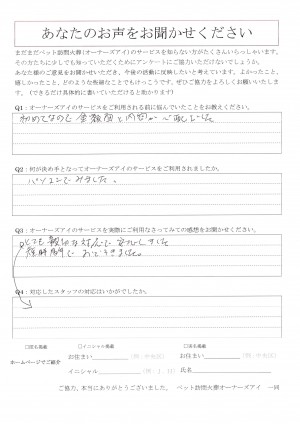 あなたのお声をお聞かせください
まだまだペット訪問火葬(オーナーズアイ)のサービスを知らない方がたくさんいらっしゃいます。
その方たちに少しでも知っていただくためにアンケートにご協力いただけないでしょうか。
あなた様のご意見をお聞かせいただき、今後の活動に反映したいと考えています。よかったこと、
嬉しかったこと、どのような些細なことでもけっこうです。ぜひご協力をよろしくお願いいたしま
す。(できるだけ具体的に書いていただけると助かります)
Q1:オーナーズアイのサービスをご利用される前に悩んでいたことをお教えください。
初めてなので金額面と内容が心配でした
Q2:何が決め手となってオーナーズアイのサービスをご利用されましたか。
パソコンでみました。
Q3:オーナーズアイのサービスを実際にご利用なさってみての感想をお聞かせください。
とても親切な対応で安心しました
短時間で
Q4:対応したスタッフの対応はいかがでしたか。
□匿名掲載
□イニシャル掲載
□実名掲載
ホームページでご紹介
お住まい
(例:中央区)
お住まい
(例:中央区)
イニシャル
氏名
ご協力、本当にありがとうございました。 ペット訪問火葬オーナーズアイ 一同